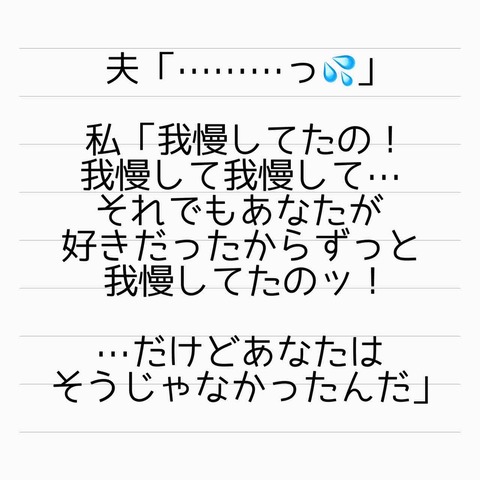 夫「………っ💦」
私「我慢してたの！
我慢して我慢して…
それでもあなたが
好きだったからずっと
我慢してたのッ！
…だけどあなたは
そうじゃなかったんだ」